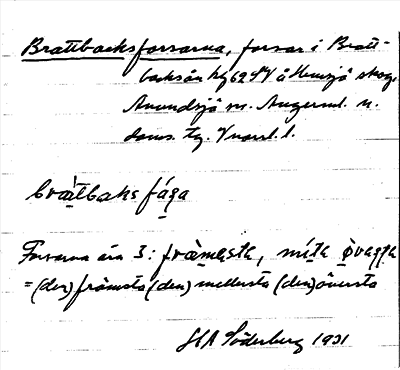 Brattbacksforsarna, forsar i Bratt-
backsån hg 62 å Hemsjö skog,
Anundsjö sn. Ångerml. n.
doms. tg. Vnorrl. l.
bratbaks fåga
Forsarna äro 3: främęsta, mita övaęta
= (den) främsta (den) mellersta (den) översta
HA Söderberg 1931